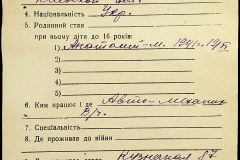 4. Національність Укр.
5. Родинний стан
при ньому діти до 16 років:
1) Анатолий-м. 1941г.
2)
3)
4)
5)
6)
6. Ким працює і де Авто-механик
В/ч.
7. Спеціальність
8. Де проживав до війни
Кузнечная 87